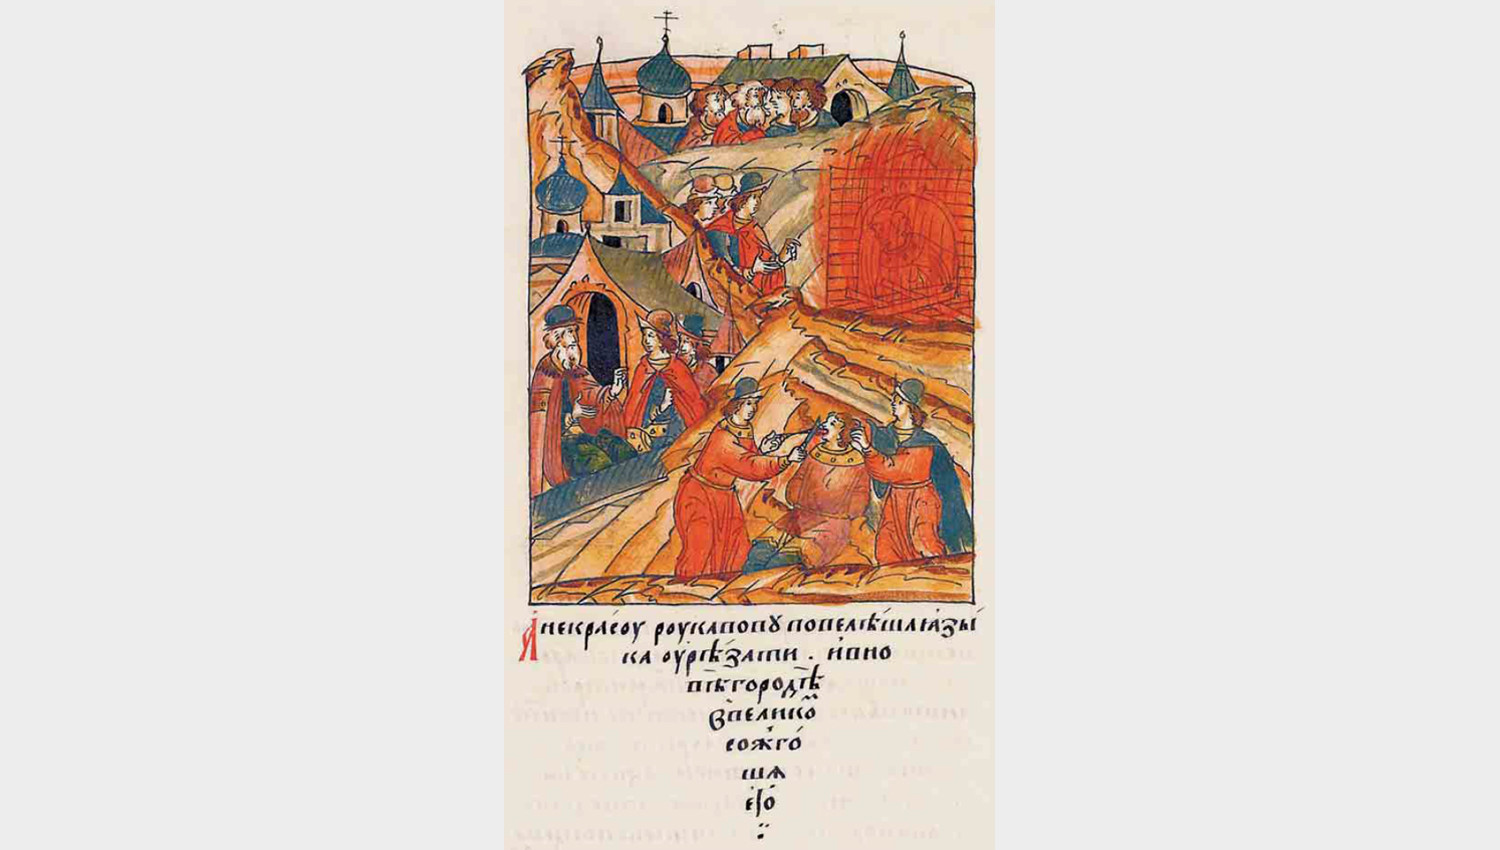 Анекра́соу роукавовꙋ повелѣ́ша ꙗ҆зы́
ка оурѣ́зати . и҆вно
вѣгородѣ
ввелико
сожго́
шѧ
е҆го́